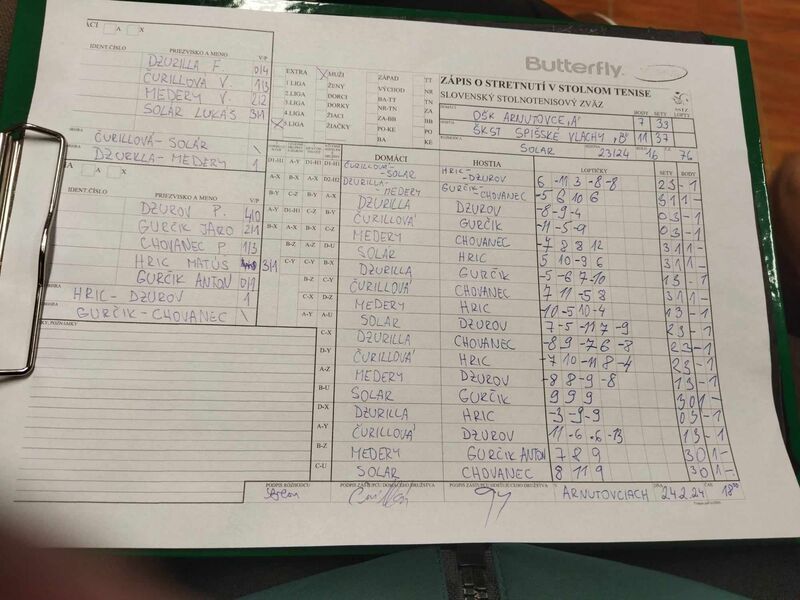 Butterfly
ZÁPIS O STRETNUTÍ V STOLNOM TENISE
SLOVENSKÝ STOLNOTENISOVÝ ZVÄZ
BODY SETY
OŠK ARNUTOVCE „A" 7 33
ŠKST SPIŠSKÉ VLACHY „B" 11 37
SOLAR 23/24 16 76
IDENT.ČÍSLO PRIEZVISKO A MENO V/P
DZURILLA F. 0/4
ČURILLOVÁ V. 1/3
MEDERY V. 2/2
SOLAR LUKÁŠ 3/1
ČURILLOVÁ - SOLAR \
DZURILLA - MEDERY 1
EXTRA X MUŽI ZÁPAD TT
1.LIGA ŽENY VÝCHOD NR
2.LIGA DORCI BA-TT TN
3.LIGA DORKY NR-TN ZA
4.LIGA ŽIACI ZA-BB BB
X 5.LIGA ŽIAČKY PO-KE PO
BA KE
IDENT.ČÍSLO PRIEZVISKO A MENO V/P
DŽUROV P. 4/0
GURČIK JARO 2/1
CHOVANEC P. 1/3
HRIC MATÚŠ 3/1
GURČIK ANTON 0/1
HRIC - DŽUROV 1
GURČIK - CHOVANEC \
DOMÁCI HOSTIA LOPTIČKY SETY BODY
ČURILLOVÁ - SOLAR HRIC - DŽUROV 6 -11 3 -8 -8 2 3 - 1
DZURILLA - MEDERY GURČIK - CHOVANEC -5 6 10 6 3 1 1 -
DZURILLA DŽUROV -8 -9 -4 0 3 - 1
ČURILLOVÁ GURČIK -11 -5 -9 0 3 - 1
MEDERY CHOVANEC -4 8 8 12 3 1 1 -
SOLAR HRIC 5 10 -9 6 3 1 1 -
DZURILLA GURČIK -5 -6 7 -10 1 3 - 1
ČURILLOVÁ CHOVANEC 7 11 -5 8 3 1 1 -
MEDERY HRIC -10 -5 10 -4 1 3 - 1
SOLAR DŽUROV 7 -5 -11 7 -9 2 3 - 1
DZURILLA CHOVANEC -8 9 -7 6 -8 2 3 - 1
ČURILLOVÁ HRIC -7 10 -11 8 -4 2 3 - 1
MEDERY DŽUROV -8 8 -9 -8 1 3 - 1
SOLAR GURČIK 9 9 9 3 0 1 -
DZURILLA HRIC -3 -9 -9 0 3 - 1
ČURILLOVÁ DŽUROV 11 -6 -6 -13 1 3 - 1
MEDERY GURČIK ANTON 7 8 9 3 0 1 -
SOLAR CHOVANEC 8 11 9 3 0 1 -
PODPIS ROZHODCU PODPIS ZÁSTUPCU DOMÁCEHO DRUŽSTVA PODPIS ZÁSTUPCU HOSŤUJÚCEHO DRUŽSTVA V DŇA ČAS
ARNUTOVCIACH 24.2.24 18⁰⁰